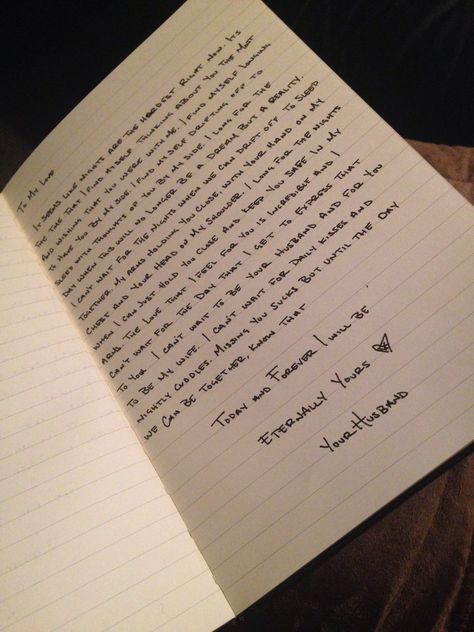 To My Love
It seems like nights are the hardest right now. It's
the time that I find myself thinking about you the most
and wishing that you were with me. I find myself longing
to have you by my side. I find myself drifting off to
sleep with thoughts of you by my side. I long for the
day when this will no longer be a dream but a reality.
I can't wait for the nights when we can drift off to sleep
together my arms holding you close, with your hand on my
chest and your head on my shoulder. I long for the nights
when I can just hold you close and keep you safe in my
arms. The love that I feel for you is ineffible and I
can't wait for the day that I get to express that
to you. I can't wait to be your husband and for you
to be my wife. I can't wait for daily kisses and
nightly cuddles. Missing you sucks but until the day
we can be together, know that
Today and Forever I will be
Eternally Yours
Your Husband